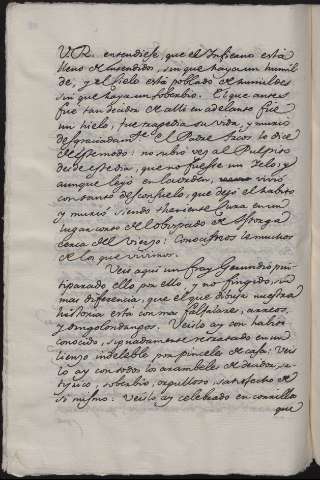 V.R. entendiese, que el Infierno está
lleno de entendidos, sin que haya un humil
de, y el cielo está poblado de humildes
sin que haya un soberbio. El que antes
fue tan de alli en adelante fue
un hielo, fue tragedia su vida, y murió
desgraciadamte. el Padre lo dice
de este modo: no subió vez al Pulpito
de que no fuese un Yelo; y
aunque leyó en la orden, vivió
con tanto desconsuelo, que dejó el habito
y murió siendo theniente Cura en un
lugar corto del obispado de Astorga
cerca del Vierzo: Conocimosle muchos
de los que vivimos.
Veis aqui un fray Gerundio pin
tiparado ello por ello, y no fingido, sin
mas diferencia, que el que dibuja nuestra
historia esta con mas falfalares, arreos,
y dingolondangos. Veislo ay con habito
conocido, signadamente retratado en un
lienzo indelable por pinceles de casa: Veis
lo ay con todos los arambeles de
soberbio, orgulloso, satisfecho de
si mismo: Veislo ay celebrado en corrillos
que